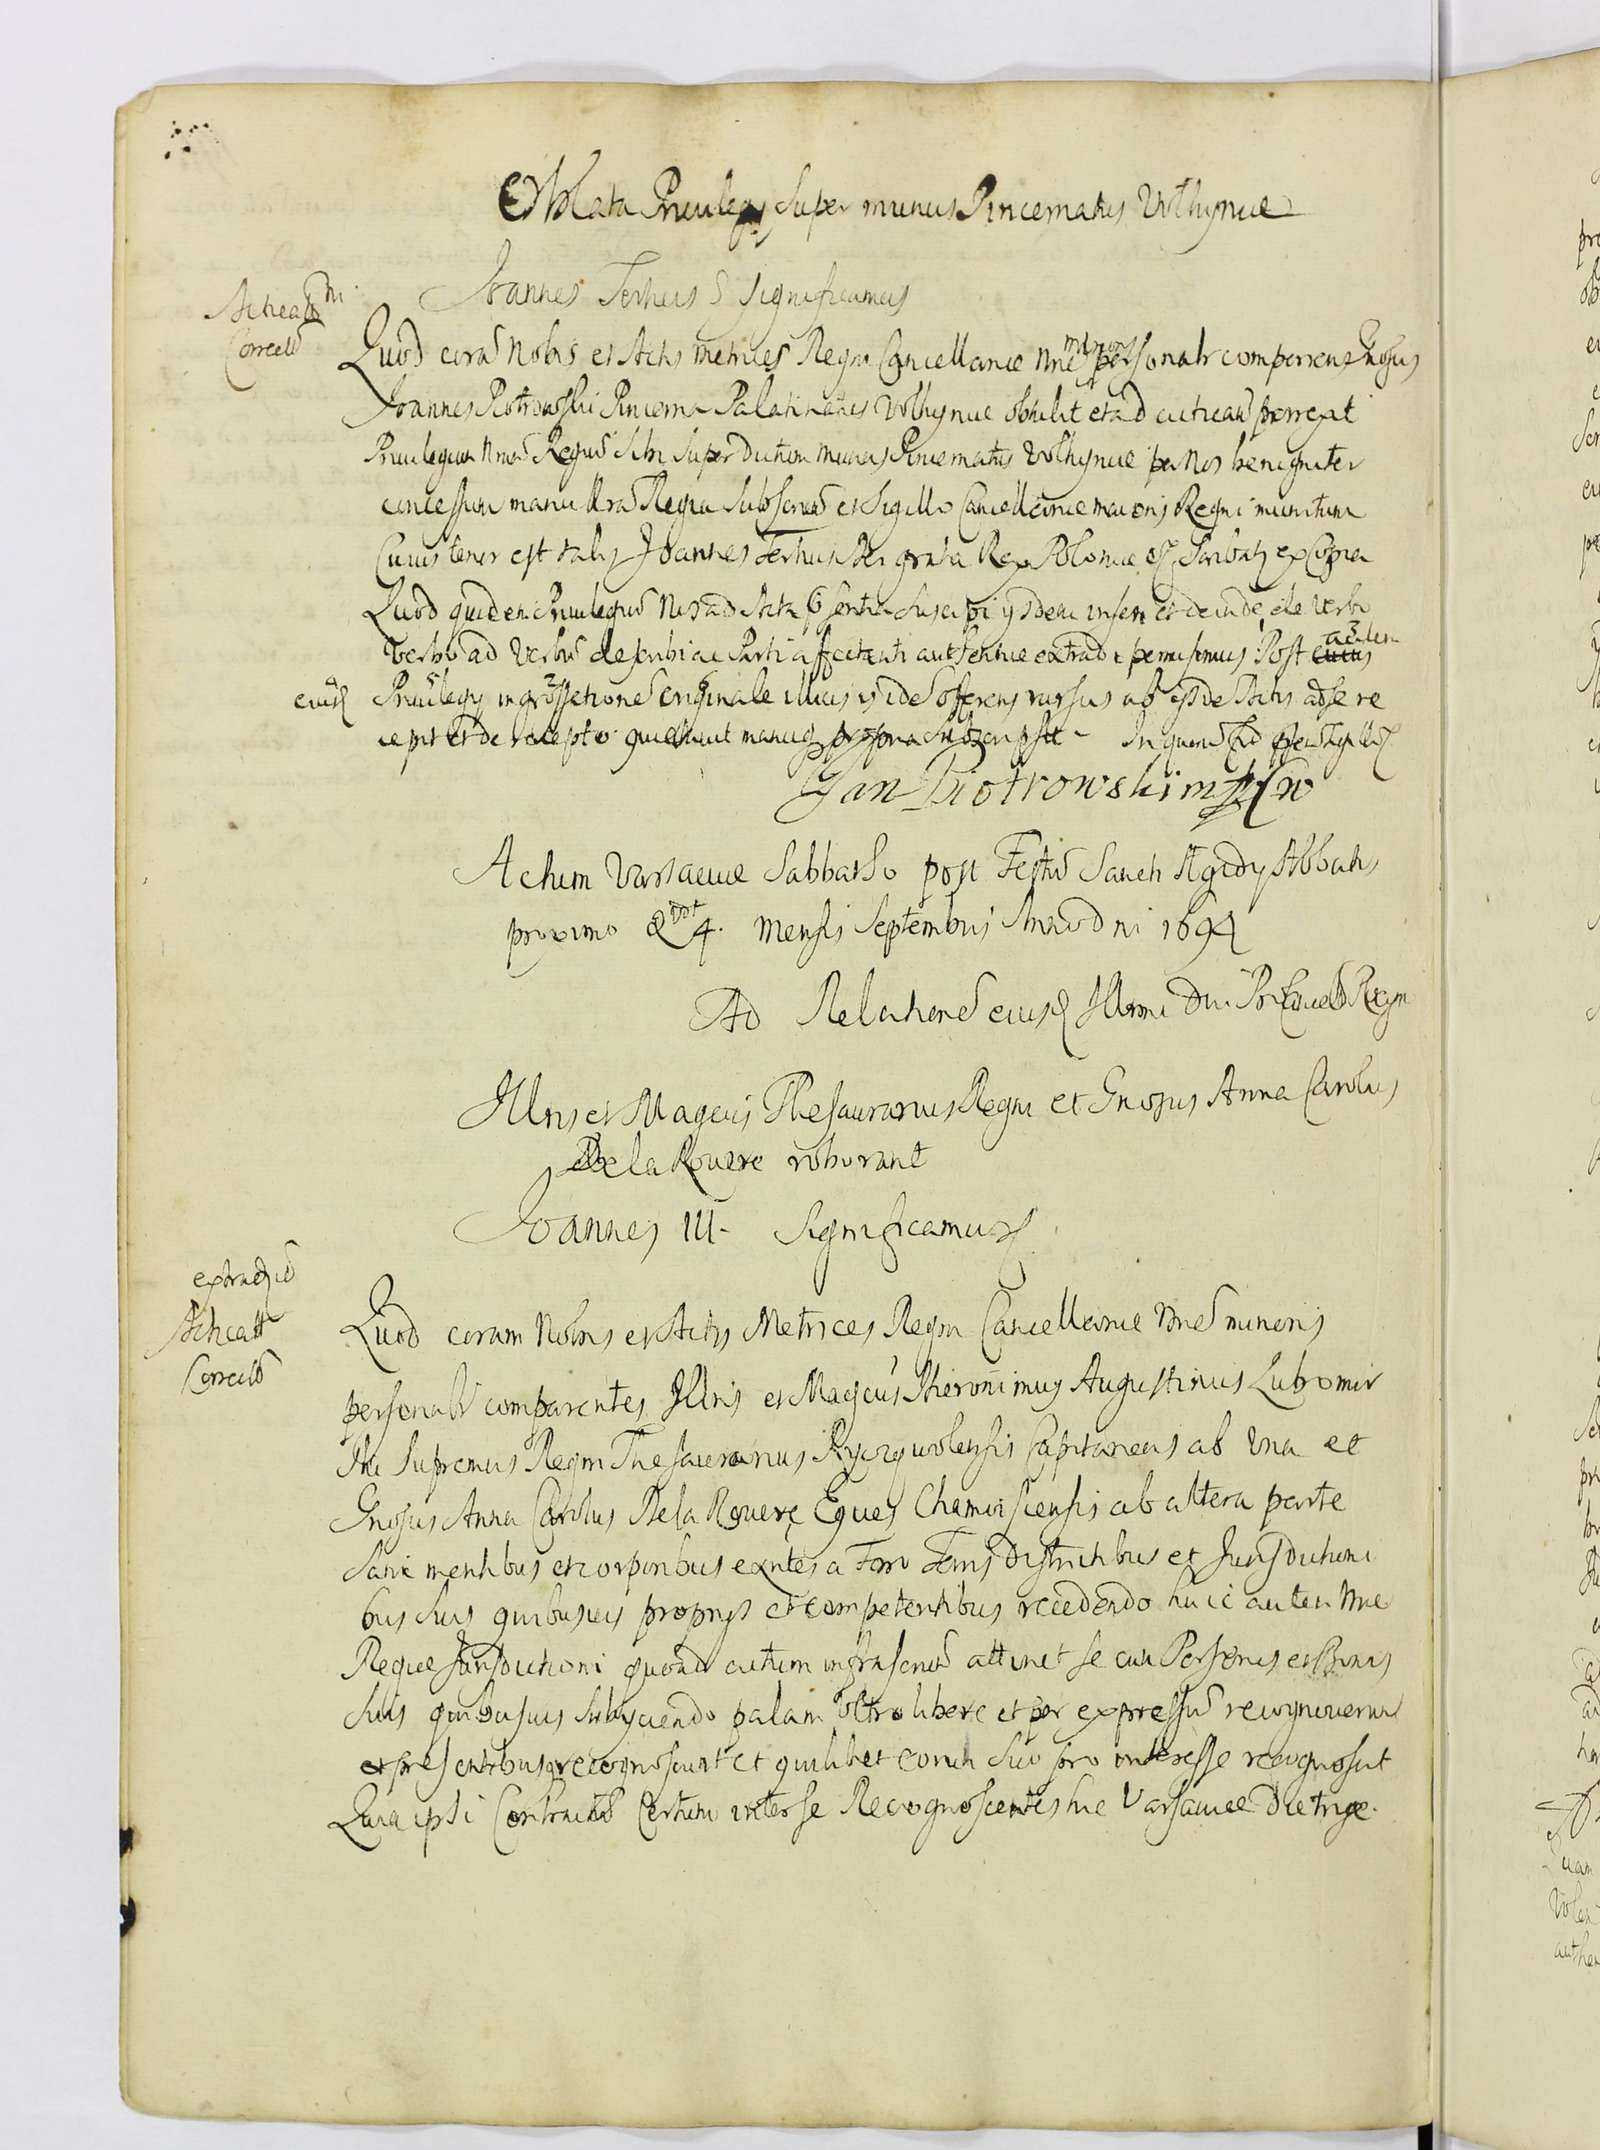 Oblata Privilegij Super munus Pincernatus Volhyniae
Joannes Tertius &c Significamus
Acticatum
Correctum
Quod corã Nobis et Actis metrices Regni Cancellariae nrae minoris personalr comparens Gnosus
Joannes Piotrowski Pincerna Palatinatus Volhyniae obtulit et ad acticand porrexit
Privilegium nrum Regiũ Sibi Super dictum munus Pincernatus Volhyniae per Nos benigniter
concessum manu nrã Regia Subscriptũ et Sigillo Cancellariae maioris Regni munitum
Cuius tenor est talis Joannes Tertius Dei gratia Rex Poloniae &c Scribatr ex Copia
Quod quidem Privilegiũ Nos ad Acta psentia Suscipi ijsdem inseri et deinde de verbo
verbo ad verbũ describi ac Parti affectanti authentice extradi permisimus Post autem
eiusd Privilegij ingrossationẽ originale illius is idẽ offerens rursus ab ijsdẽ Actis ad se re
cepit et de recepto quietavit manuq propria Subscripsit In quorũ fid
Jan Piotrowski mp CW
Actum Varsaviae Sabbatho post Festũ Sancti Aegidij Abbatis
proximo d 4. mensis Septembris Anno dni 1694
Ad Relationẽ eiusd Illmi Dni Procancell Regni
Illris et Magcus Thesaurarius Regni et Gnosus Anna Carolus
De la Rovere roborant
Joannes III Significamus
extraditũ
Acticatt
Correctũ
Quod coram Nobis et Actis Metrices Regni Cancellariae nrae minoris
personalr comparentes Illris et Magcus Hieronimus Augustinus Lubomir
ski Supremus Regni Thesaurarius Ryczywolensis Capitaneus ab una et
Gnosus Anna Carolus De la Rovere Eques ab altera parte
Sani mentibus et corporibus exntes a Foro Terris Districtibus et Jurisdictioni
bus suis quibusvis proprijs et competentibus recedendo huic autem nrae
Regiae Jurisdictioni quoad actum infrascriptũ attinet se cum Personis et Bonis
suis quibusvis subijciendo palam vltro libere et per expressũ recognoverunt
et presentibus recognoscunt et quilibet eorum suo pro interesse recognoscit
Quia ipsi Contractũ Certum inter se Recognoscentes hic Varsaviae Die